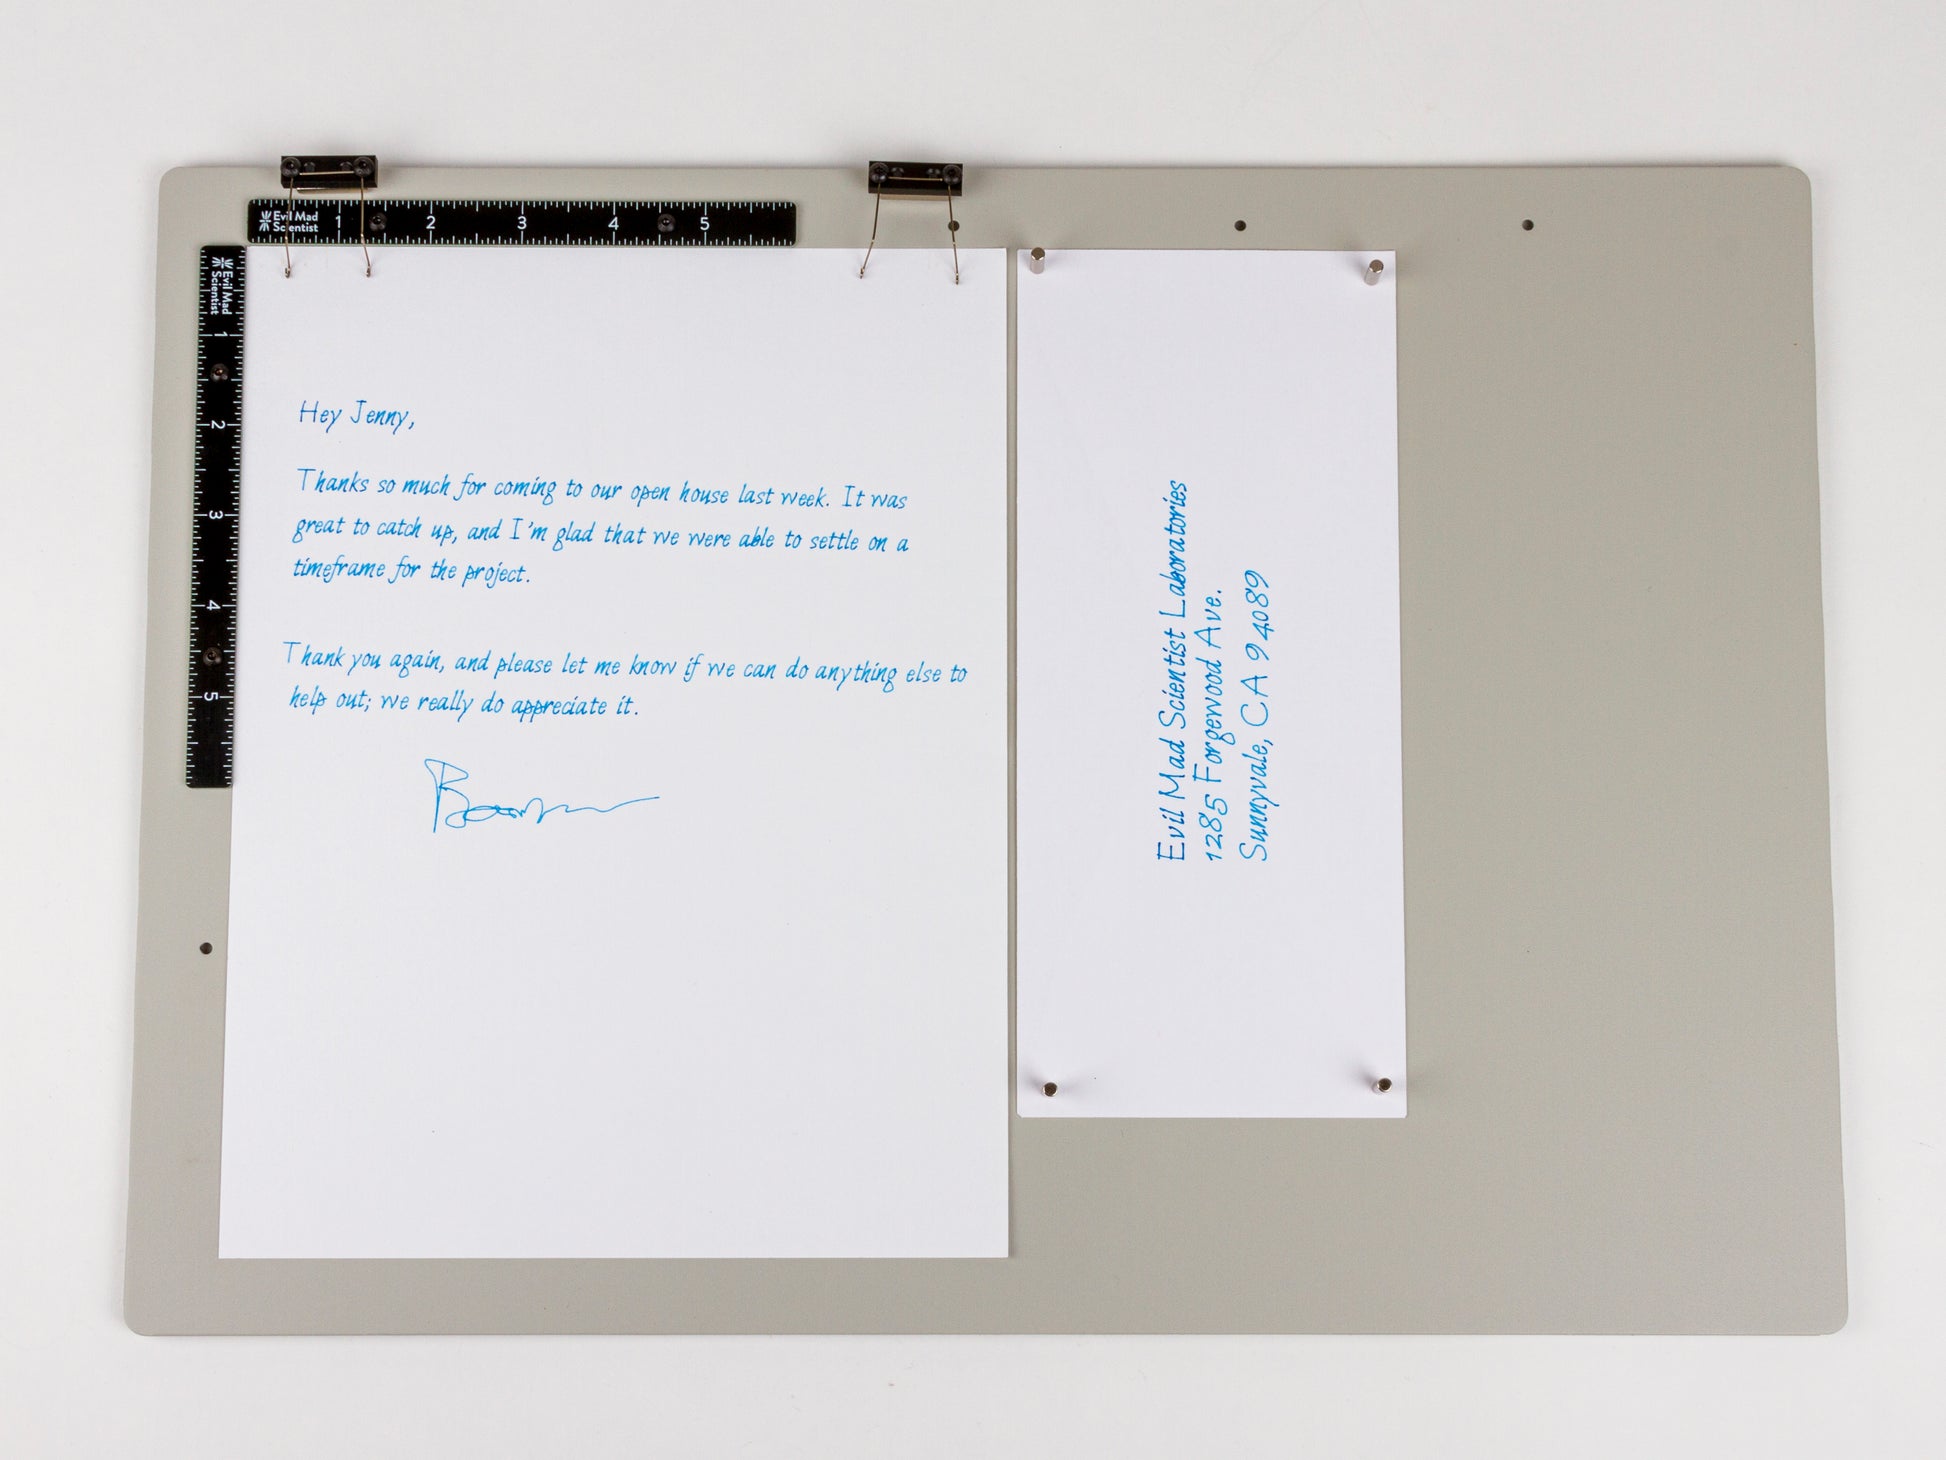 Evil Mad
Scientist
1 2 3 4 5
Evil Mad
Scientist
1 2 3 4 5
Hey Jenny,
Thanks so much for coming to our open house last week. It was
great to catch up, and I'm glad that we were able to settle on a
timeframe for the project.
Thank you again, and please let me know if we can do anything else to
help out; we really do appreciate it.
Evil Mad Scientist Laboratories
1285 Forgewood Ave.
Sunnyvale, CA 94089